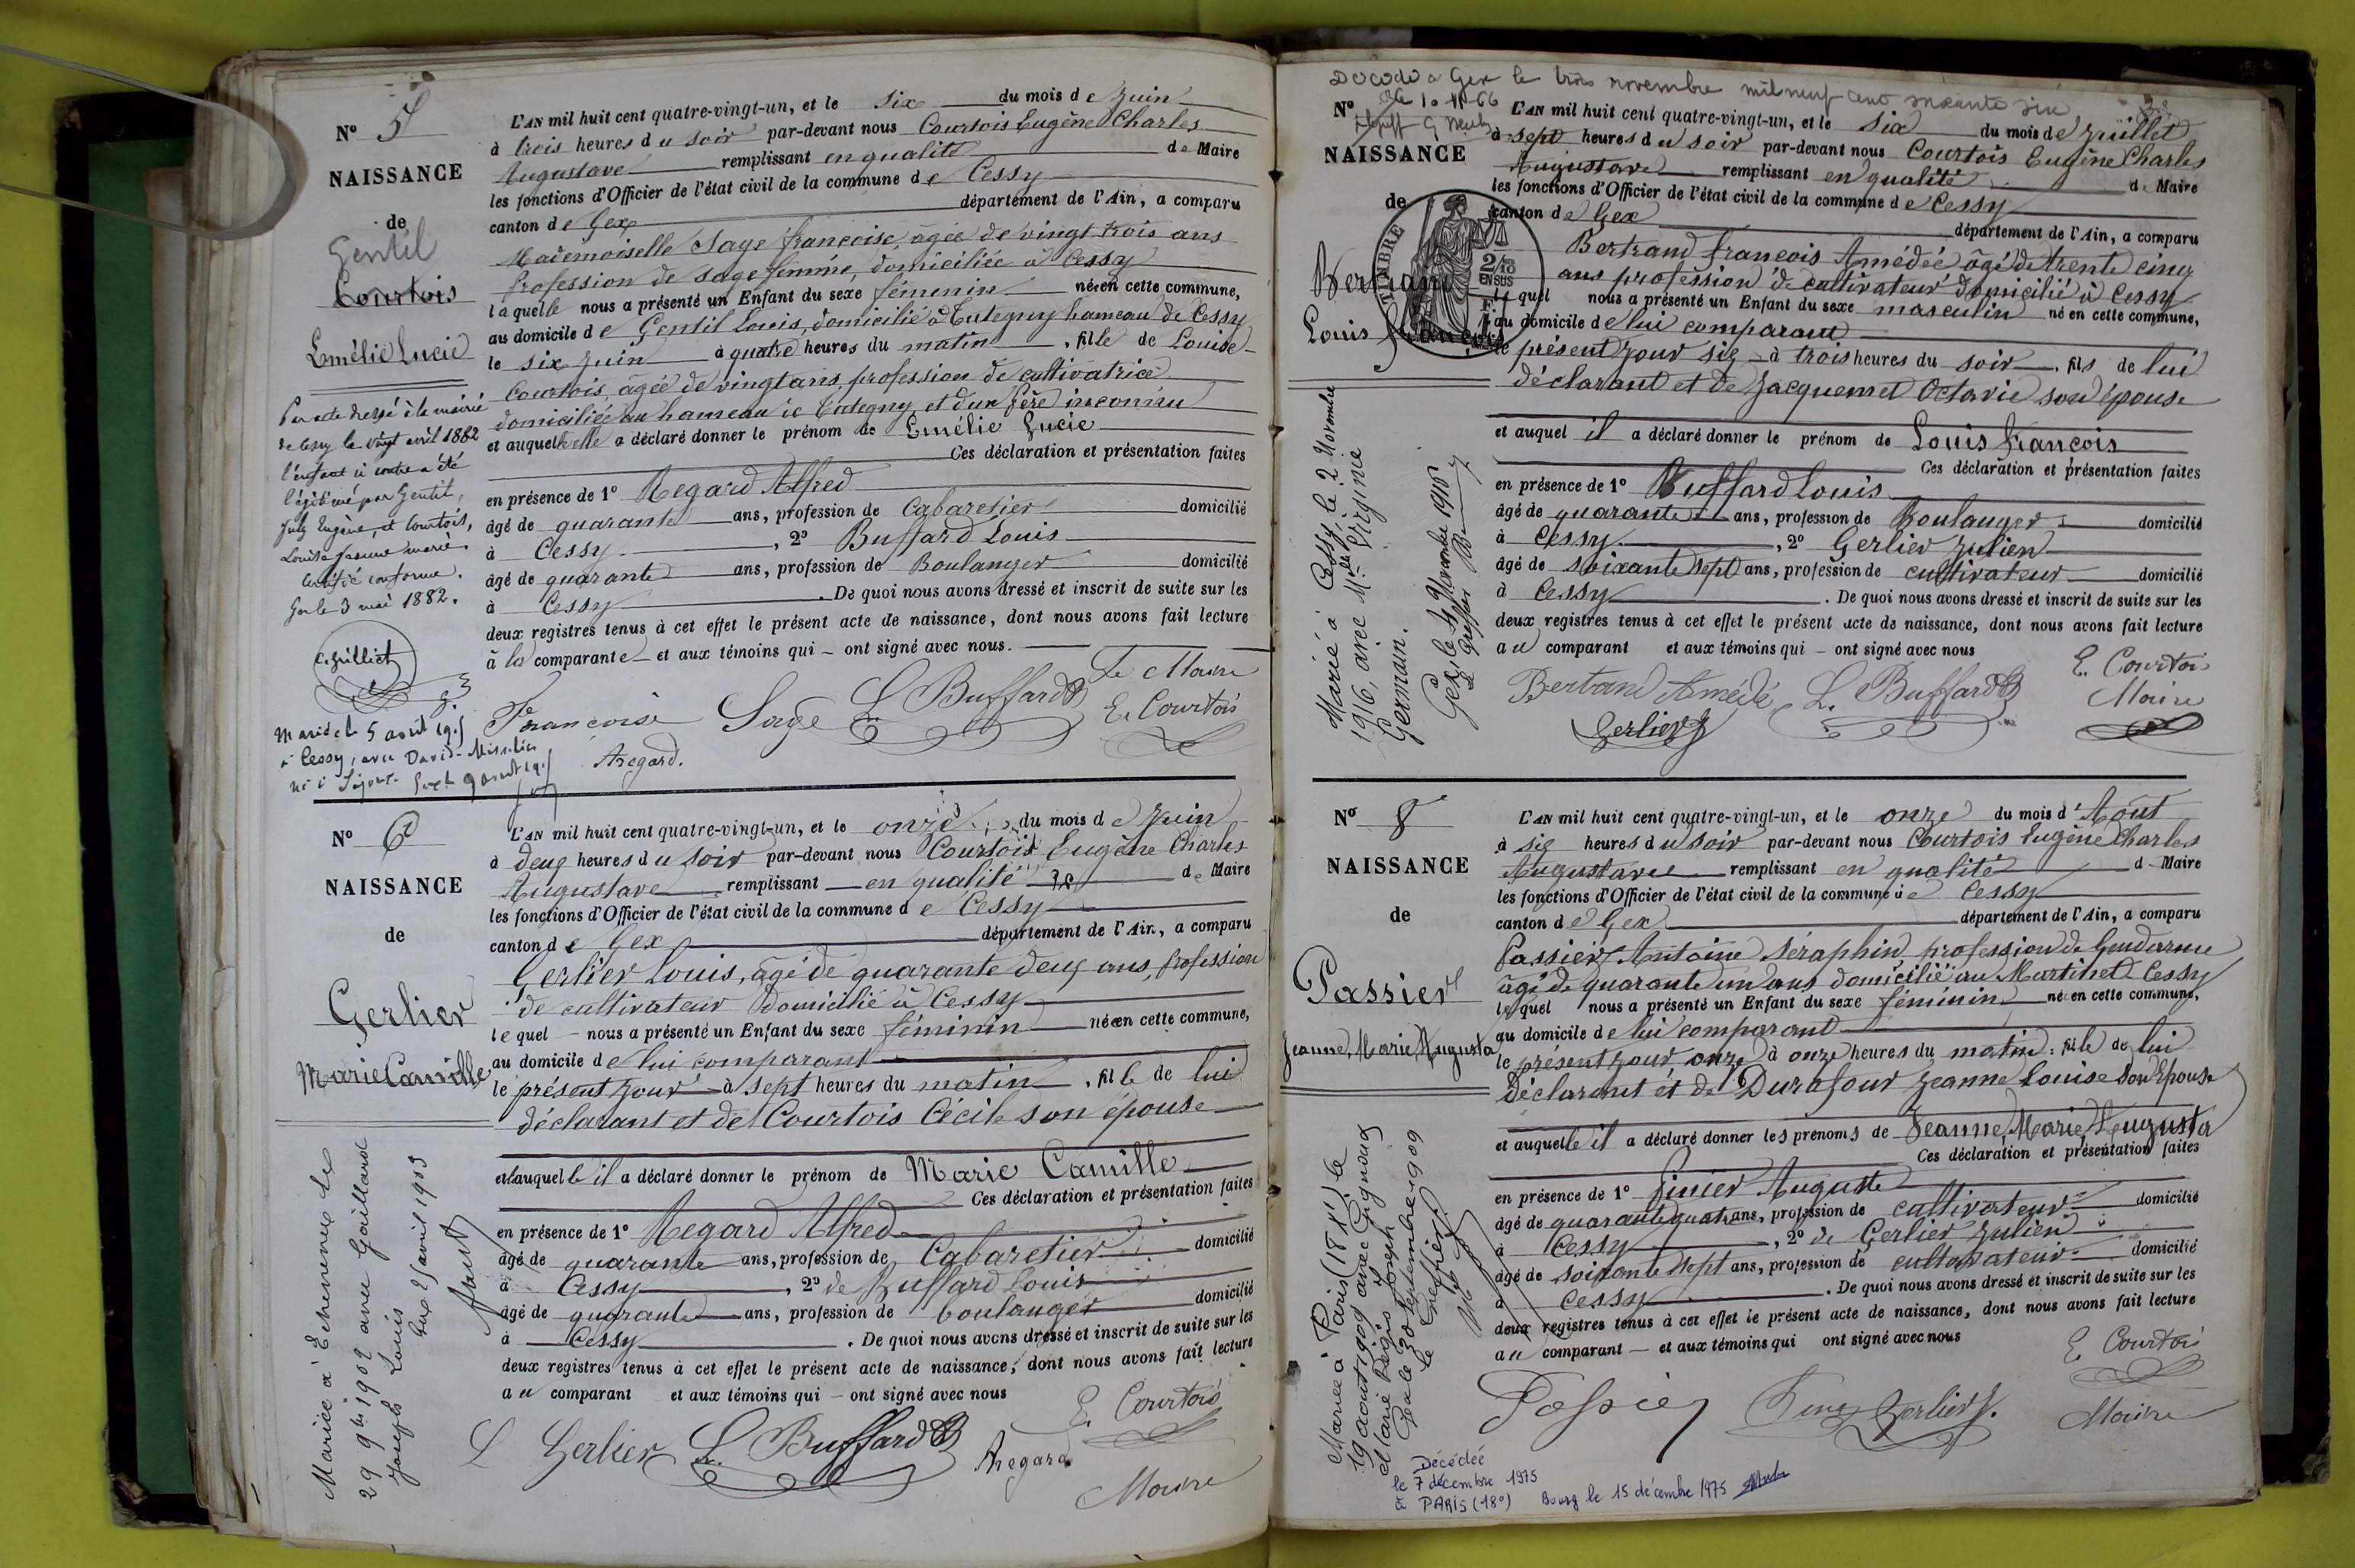 N° 5
NAISSANCE
de
Gentil
Courtois
Emélie Lucie
Par acte dressé à la mairie
de Cessy le vingt avril 1882
l'enfant ci contre a été
légitimé par Gentil,
July Eugène, et Courtois,
Louise Jeanne mariés.
Certifié conforme.
Gex le 3 mai 1882.
Mariée le 5 août
à Cessy, avec David-Missilier
L'AN mil huit cent quatre-vingt-un, et le six du mois de Juin
à trois heures du soir par-devant nous Courtois Eugène Charles
Augustave remplissant en qualité de Maire
les fonctions d'Officier de l'état civil de la commune de Cessy
canton de Gex département de l'Ain, a comparu
Mademoiselle Sage françoise, âgée de vingt trois ans
profession de sage femme, domiciliée à Cessy
laquelle nous a présenté un Enfant du sexe féminin née en cette commune,
au domicile de Gentil Louis, domicilié à Tutegny hameau de Cessy
le six Juin à quatre heures du matin, fille de Louise
Courtois, âgée de vingt ans, profession de cultivatrice
domiciliée au hameau de Tutegny et d'un père inconnu
et auquel elle a déclaré donner le prénom de Emélie Lucie
Ces déclaration et présentation faites
en présence de 1° Regard Alfred
âgé de quarante ans, profession de Cabaretier domicilié
à Cessy, 2° Buffard Louis
âgé de quarante ans, profession de Boulanger domicilié
à Cessy. De quoi nous avons dressé et inscrit de suite sur les
deux registres tenus à cet effet le présent acte de naissance, dont nous avons fait lecture
à la comparante et aux témoins qui ont signé avec nous.
Le Maire
Françoise Sage L. Buffard E. Courtois
Aregard.
N° 6
NAISSANCE
de
Gerlier
Marie Camille
Mariée à Echenevex le
29 9bre 1902 avec Gaillard
Joseph Louis
Gex 25 avril 1903
L'AN mil huit cent quatre-vingt-un, et le onze du mois de Juin
à deux heures du soir par-devant nous Courtois Eugène Charles
Augustave remplissant en qualité de Maire
les fonctions d'Officier de l'état civil de la commune de Cessy
canton de Gex département de l'Ain, a comparu
Gerlier Louis, âgé de quarante deux ans, profession
de cultivateur domicilié à Cessy
lequel nous a présenté un Enfant du sexe féminin née en cette commune,
au domicile de lui comparant
le présent jour à sept heures du matin, fille de lui
déclarant et de Courtois Cécile son épouse
et auquelle il a déclaré donner le prénom de Marie Camille
Ces déclaration et présentation faites
en présence de 1° Regard Alfred
âgé de quarante ans, profession de Cabaretier domicilié
à Cessy, 2° de Buffard Louis
âgé de quarante ans, profession de boulanger domicilié
à Cessy. De quoi nous avons dressé et inscrit de suite sur les
deux registres tenus à cet effet le présent acte de naissance, dont nous avons fait lecture
au comparant et aux témoins qui ont signé avec nous
L Gerlier L. Buffard Aregard E. Courtois
Maire
Décédé à Gex le trois novembre mil neuf cent soixante six
N°
NAISSANCE
de
TIMBRE
2/10
EN SUS
Bertrand
Louis François
Marié à Cessy, le 2 Novembre
1916, avec Mlle Virginie
Germain.
Gex, le 4 Novembre 1916
Le Greffier
L'AN mil huit cent quatre-vingt-un, et le six du mois de Juillet
à sept heures du soir par-devant nous Courtois Eugène Charles
Augustave remplissant en qualité de Maire
les fonctions d'Officier de l'état civil de la commune de Cessy
canton de Gex département de l'Ain, a comparu
Bertrand françois Amédée âgé de trente cinq
ans profession de cultivateur domicilié à Cessy
lequel nous a présenté un Enfant du sexe masculin né en cette commune,
au domicile de lui comparant
le présent jour six à trois heures du soir, fils de lui
déclarant et de Jacquemet Octavie son épouse
et auquel il a déclaré donner le prénom de Louis françois
Ces déclaration et présentation faites
en présence de 1° Buffard Louis
âgé de quarante ans, profession de Boulanger domicilié
à Cessy, 2° Gerlier Julien
âgé de soixante sept ans, profession de cultivateur domicilié
à Cessy. De quoi nous avons dressé et inscrit de suite sur les
deux registres tenus à cet effet le présent acte de naissance, dont nous avons fait lecture
au comparant et aux témoins qui ont signé avec nous
E. Courtois
Bertrand Amédé L. Buffard Maire
Gerlier J
N° 8
NAISSANCE
de
Passier
Jeanne, Marie Augusta
Mariée à Paris (18e) le
19 août 1909 avec
Marie Régis Joseph
Gex le 30 septembre 1909
le Greffier
L'AN mil huit cent quatre-vingt-un, et le onze du mois d'Août
à six heures du soir par-devant nous Courtois Eugène Charles
Augustave remplissant en qualité de Maire
les fonctions d'Officier de l'état civil de la commune de Cessy
canton de Gex département de l'Ain, a comparu
Passier Antoine Séraphin profession de Gendarme
âgé de quarante un ans domicilié au Martinet Cessy
lequel nous a présenté un Enfant du sexe féminin née en cette commune,
au domicile de lui comparant
le présent jour onze à onze heures du matin, fille de lui
déclarant et de Durafour Jeanne Louise son Epouse
et auquelle il a déclaré donner les prénoms de Jeanne, Marie, Augusta
Ces déclaration et présentation faites
en présence de 1° Finier Auguste
âgé de quarante quatre ans, profession de cultivateur domicilié
à Cessy, 2° de Gerlier Julien
âgé de soixante sept ans, profession de cultivateur domicilié
à Cessy. De quoi nous avons dressé et inscrit de suite sur les
deux registres tenus à cet effet le présent acte de naissance, dont nous avons fait lecture
au comparant et aux témoins qui ont signé avec nous
E. Courtois
Passier Gerlier J. Maire
Décédée
le 7 décembre 1975
à PARIS (18°) Bourg le 15 décembre 1975